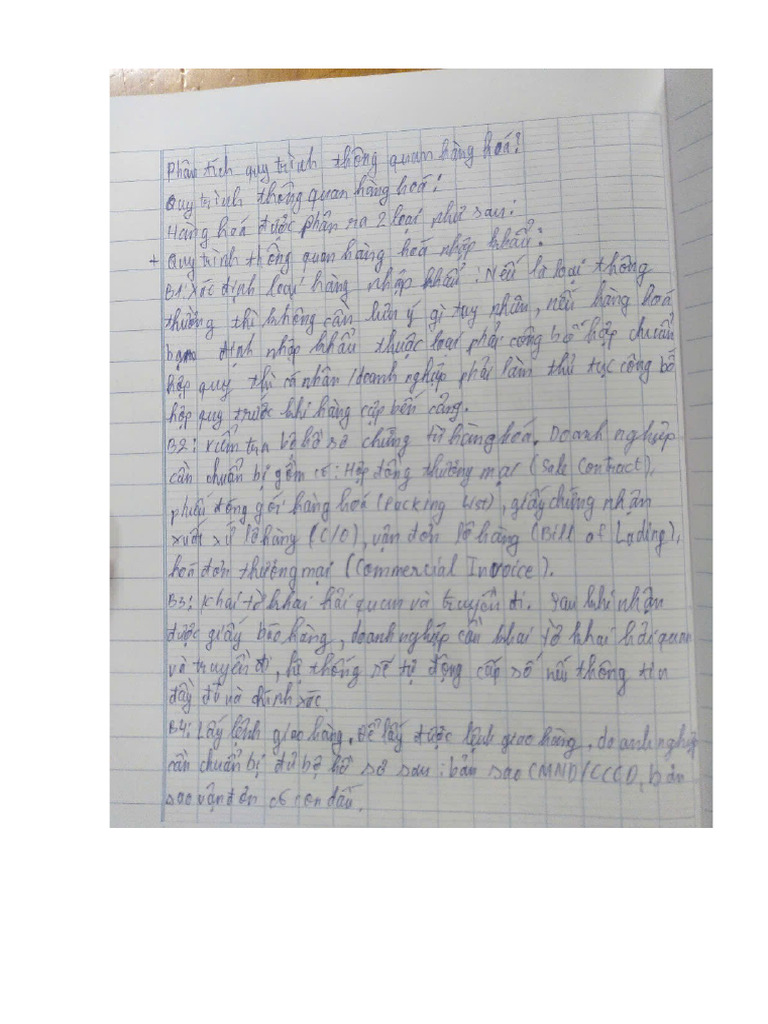 Phân tích quy trình thông quan hàng hoá?
Quy trình thông quan hàng hoá:
Hàng hoá được phân ra 2 loại như sau:
+ Quy trình thông quan hàng hoá nhập khẩu:
B1: Xác định loại hàng nhập khẩu: Nếu là loại thông
thường thì không cần lưu ý gì tuy nhiên, nếu hàng hoá
bạn định nhập khẩu thuộc loại phải công bố hợp chuẩn
hợp quy thì cá nhân/doanh nghiệp phải làm thủ tục công bố
hợp quy trước khi hàng cập bến cảng.
B2: Kiểm tra bộ hồ sơ chứng từ hàng hoá. Doanh nghiệp
cần chuẩn bị gồm có: Hợp đồng thương mại (Sale Contract),
phiếu đóng gói hàng hoá (Packing List), giấy chứng nhận
xuất xứ lô hàng (C/O), vận đơn lô hàng (Bill of Lading),
hoá đơn thương mại (Commercial Invoice).
B3: Khai tờ khai hải quan và truyền đi. Sau khi nhận
được giấy báo hàng, doanh nghiệp cần khai tờ khai hải quan
và truyền đi, hệ thống sẽ tự động cấp số nếu thông tin
đầy đủ và chính xác.
B4: Lấy lệnh giao hàng. Để lấy được lệnh giao hàng, doanh nghiệp
cần chuẩn bị đủ bộ hồ sơ sau: bản sao CMND/CCCD, bản
sao vận đơn có con dấu.